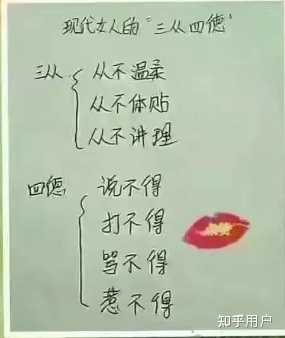 现代女人的“三从四德”
三从
从不温柔
从不体贴
从不讲理
四德
说不得
打不得
骂不得
惹不得
知乎用户